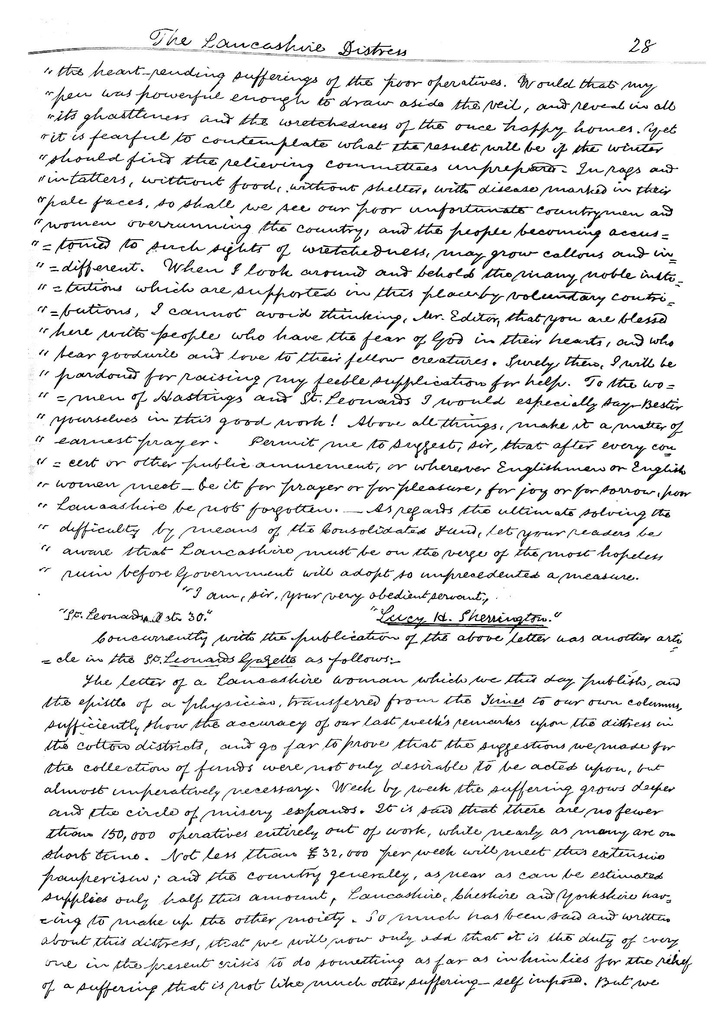 The Lancashire Distress 28
"the heart-rending sufferings of the poor operatives. Would that my
"pen was powerful enough to draw aside the veil, and reveal in all
"its ghastliness and the wretchedness of the once happy homes. Yet
"it is fearful to contemplate what the result will be if the winter
"should find the relieving committees unprepared. In rags and
"in tatters, without food, without shelter, with disease marked in their
"pale faces, so shall we see our poor unfortunate countrymen and
"women overrunning the country, and the people becoming accus=
"=tomed to such sights of wretchedness, may grow callous and in=
"=different. When I look around and behold the many noble insti=
"=tutions which are supported in this place by voluntary contri=
"=butions, I cannot avoid thinking, Mr. Editor, that you are blessed
"here with people who have the fear of God in their hearts, and who
"bear goodwill and love to their fellow creatures. Surely then, I will be
"pardond for raising my feeble supplication for help. To the wo=
"=men of Hastings and St. Leonards I would especially say—Bestir
"yourselves in this good work! Above all things, make it a matter of
"earnest prayer. Permit me to suggest, sir, that after every con
"=cert or other public amusement, or wherever Englishmen or English
"women meet — be it for prayer or for pleasure, for joy or for sorrow, poor
"Lancashire be not forgotten. — As regards the ultimate solving the
"difficulty by means of the Consolidated Fund, let your readers be
"aware that Lancashire must be on the verge of the most hopeless
"ruin before Government will adopt so unprecedented a measure.
"I am, sir, your very obedient servant,
"St. Leonards, 30." "Lucy H. Sherrington."
Concurrently with the publication of the above letter was another arti
=cle in the St. Leonards Gazette as follows:—
The letter of a Lancashire woman which we this day publish, and
the epistle of a physician, transferred from the Times to our own columns,
sufficiently show the accuracy of our last week's remarks upon the distress in
the cotton districts, and go far to prove that the suggestions we made for
the collection of funds were not only desirable to be acted upon, but
almost imperatively necessary. Week by week the suffering grows deeper
and the circle of misery expands. It is said that there are no fewer
than 150,000 operatives entirely out of work, while nearly as many are on
short time. Not less than £32,000 per week will meet this extensive
pauperism; and the country generally, as near as can be estimated
supplies only half this amount, Lancashire, Cheshire and Yorkshire hav=
=ing to make up the other moiety. So much has been said and written
about this distress, that we will now only add that it is the duty of every
one in the present crisis to do something as far as in him lies for the relief
of a suffering that is not like much other suffering — self imposed. But we